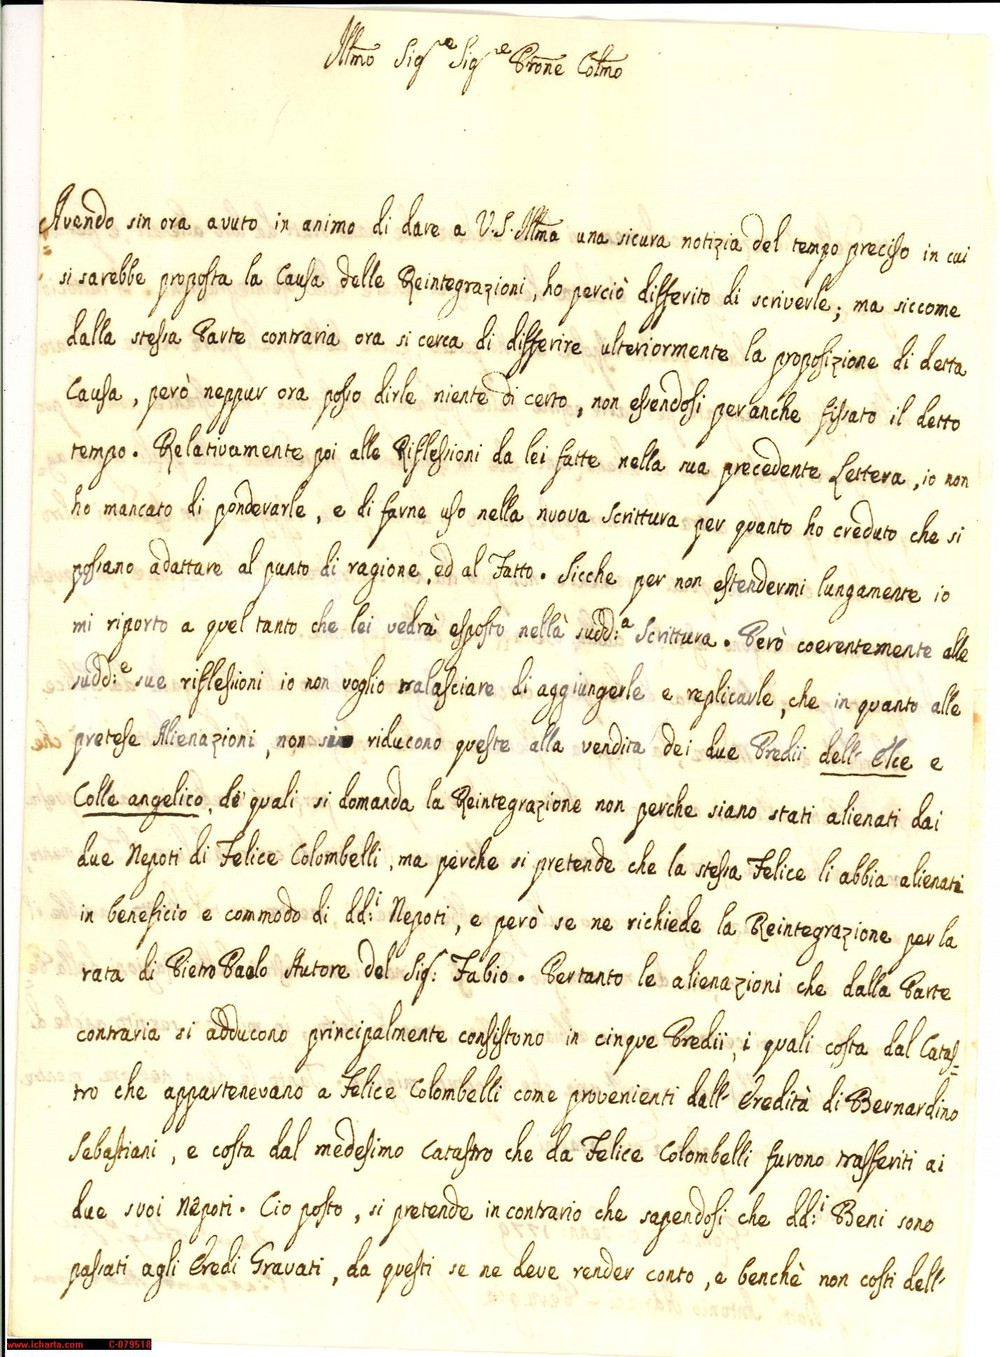 Illmo Sig.re Sig.re Prone Colmo
Avendo sin ora avuto in animo di dare a V.S. Illma una sicura notizia del tempo preciso in cui
si sarebbe proposta la Causa delle Reintegrazioni, ho perciò differito di scriverle; ma siccome
dalla stessa Parte contraria ora si cerca di differire ulteriormente la proposizione di detta
Causa, però neppur ora posso dirle niente di certo, non essendosi peranche fissato il detto
tempo. Relativamente poi alle Riflessioni da lei fatte nella sua precedente Lettera, io non
ho mancato di ponderarle, e di farne uso nella nuova Scrittura per quanto ho creduto che si
possano adattare al punto di ragione, ed al Fatto. Sicche per non estendermi lungamente io
mi riporto a quel tanto che lei vedrà esposto nella sudd:a Scrittura. Però coerentemente alle
sudd:e sue riflessioni io non voglio tralasciare di aggiungerle e replicarle, che in quanto alle
pretese Alienazioni, non si riducono queste alla vendita dei due Predii dell' Elce e
Colle angelico, de' quali si domanda la Reintegrazione non perche siano stati alienati dai
due Nepoti di Felice Colombelli, ma perche si pretende che la stessa Felice li abbia alienati
in beneficio e commodo di dd:i Nepoti, e però se ne richiede la Reintegrazione per la
rata di Pietro Paolo Autore del Sig: Fabio. Pertanto le alienazioni che dalla Parte
contraria si adducono principalmente consistono in cinque Predii, i quali costa dal Catas=
tro che appartenevano a Felice Colombelli come provenienti dall' Eredità di Bernardino
Sebastiani, e costa dal medesimo Catastro che da Felice Colombelli furono trasferiti ai
due suoi Nepoti. Cio posto, si pretende in contrario che sapendosi che dd:i Beni sono
passati agli Eredi Gravati, da questi se ne deve render conto, e benchè non costi dell'
www.icharta.com C-079518